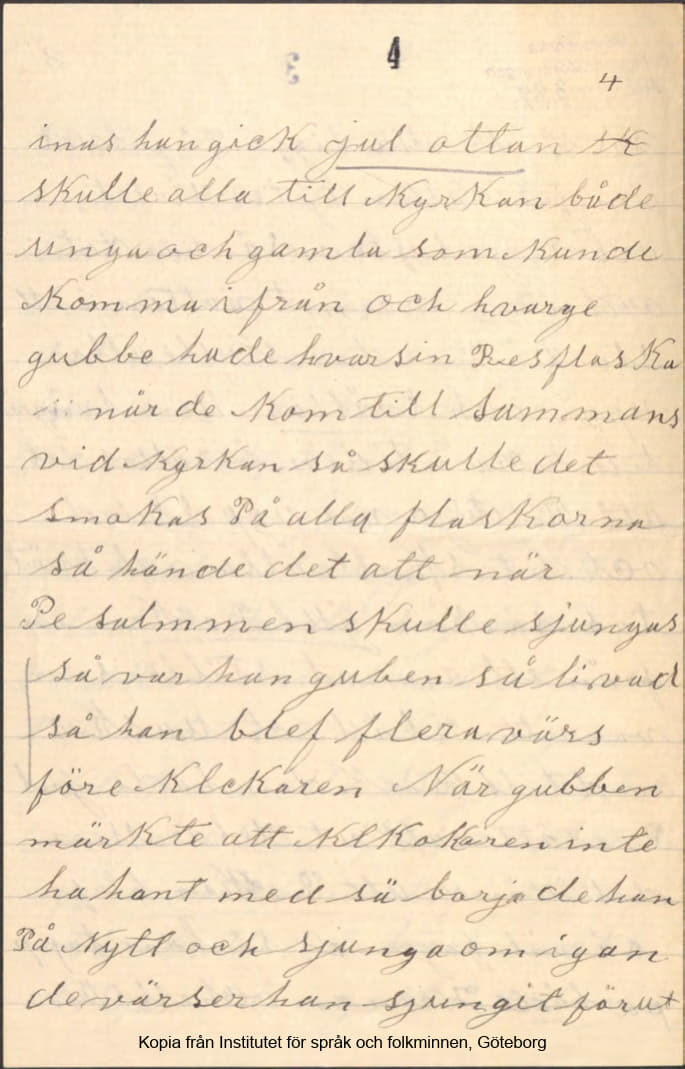 3 4
4
inas han gick jul ottan
skulle alla till Kyrkan både
unga och gamla som Kunde
Komma ifrån och hvarge
gubbe hade hvarsin Resflaska
när de Kom till sammans
vid Kyrkan så skulle det
smakas På alla flaskorna
så hände det att när
Pesalmmen skulle sjungas
så var han guben så livad
så han blef flera värs
före Klckaren När gubben
märkte att KlKokaren inte
ha hant med så borjade han
På Nytt och sjunga om igan
de värser han sjungit förut
Kopia från Institutet för språk och folkminnen, Göteborg